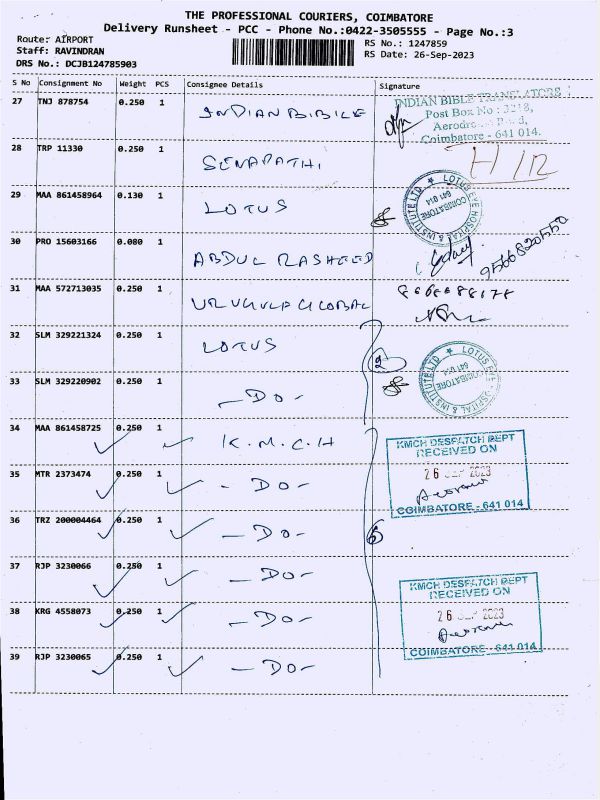 THE PROFESSIONAL COURIERS, COIMBATORE
Delivery Runsheet - PCC - Phone No.:0422-3505555 - Page No.:3
Route: AIRPORT
RS No.: 1247859
Staff: RAVINDRAN
RS Date: 26-Sep-2023
DRS No.: DCJB124785903
S No Consignment No Weight PCS Consignee Details Signature
27 TNJ 878754 0.250 1 INDIAN BIBILE
INDIAN BIBLE TRANSLATORS
Post Box No : 3218,
Coimbatore - 641 014.
28 TRP 11330 0.250 1 SENAPATHI
29 MAA 861458964 0.130 1 LOTUS
LOTUS EYE HOSPITAL & INSTITUTE LTD
COIMBATORE
641 014
30 PRO 15603166 0.080 1 ABDUL RASHEED
9566820550
31 MAA 572713035 0.250 1 GLOBAL
32 SLM 329221324 0.250 1 LOTUS
2
LOTUS EYE HOSPITAL & INSTITUTE LTD
COIMBATORE
641 014
33 SLM 329220902 0.250 1 - DO -
34 MAA 861458725 0.250 1 K.M.C.H
KMCH DESPATCH DEPT
RECEIVED ON
26 SEP 2023
COIMBATORE - 641 014
35 MTR 2373474 0.250 1 - DO -
36 TRZ 200004464 0.250 1 - DO -
6
37 RJP 3230066 0.250 1 - DO -
KMCH DESPATCH DEPT
RECEIVED ON
26 SEP 2023
COIMBATORE - 641 014
38 KRG 4558073 0.250 1 - DO -
39 RJP 3230065 0.250 1 - DO -